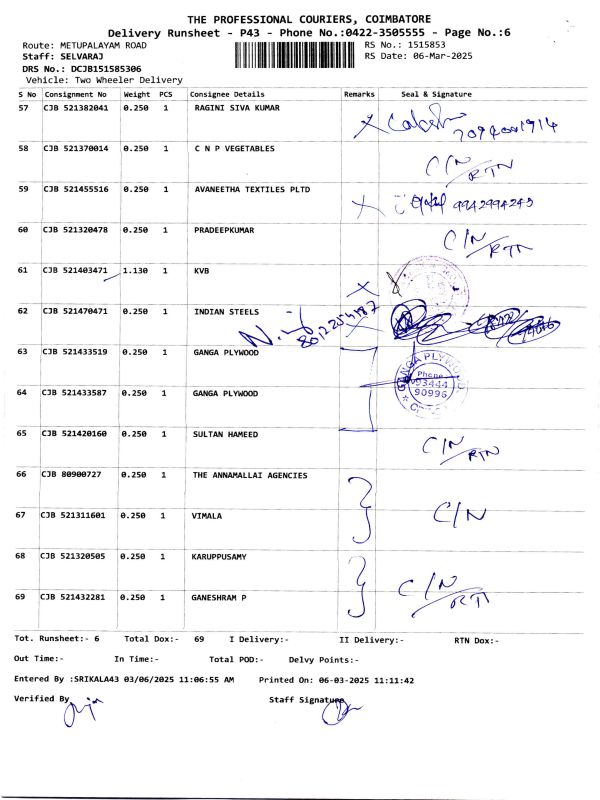 THE PROFESSIONAL COURIERS, COIMBATORE
Delivery Runsheet - P43 - Phone No.:0422-3505555 - Page No.:6
Route: METUPALAYAM ROAD RS No.: 1515853
Staff: SELVARAJ RS Date: 06-Mar-2025
DRS No.: DCJB151585306
Vehicle: Two Wheeler Delivery
S No Consignment No Weight PCS Consignee Details Remarks Seal & Signature
57 CJB 521382041 0.250 1 RAGINI SIVA KUMAR
58 CJB 521370014 0.250 1 C N P VEGETABLES C/N RTN
59 CJB 521455516 0.250 1 AVANEETHA TEXTILES PLTD 9942994245
60 CJB 521320478 0.250 1 PRADEEPKUMAR C/N RTN
61 CJB 521403471 1.130 1 KVB
62 CJB 521470471 0.250 1 INDIAN STEELS
63 CJB 521433519 0.250 1 GANGA PLYWOOD GANGA PLYWOOD
Phone
93444
90996
64 CJB 521433587 0.250 1 GANGA PLYWOOD
65 CJB 521420160 0.250 1 SULTAN HAMEED C/N RTN
66 CJB 80900727 0.250 1 THE ANNAMALLAI AGENCIES
67 CJB 521311601 0.250 1 VIMALA C/N
68 CJB 521320505 0.250 1 KARUPPUSAMY
69 CJB 521432281 0.250 1 GANESHRAM P C/N RTN
Tot. Runsheet:- 6 Total Dox:- 69 I Delivery:- II Delivery:- RTN Dox:-
Out Time:- In Time:- Total POD:- Delvy Points:-
Entered By :SRIKALA43 03/06/2025 11:06:55 AM Printed On: 06-03-2025 11:11:42
Verified By Staff Signature